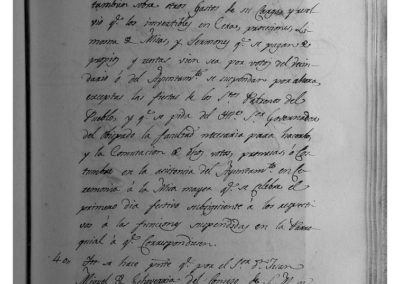 tumbres sobra otros gastos de su Cargo y
vio q.e los invertibles en Cera, procesiones, Li-
mosna de Misas, y Sermones q.e se pagan de
propios y rentas sean por votos del vecin-
dario ó del Ayuntam.to se suspendan por ahora,
excepto las fiestas de los S.tos Patronos del
Pueblo, y q.e se pida del S.or Governador
del Obispado la facultad necesaria para hacerlo,
y la Comutacion de dhos votos, promesas, ó Cos-
tumbre en la asistencia del Ayuntam.to en ce-
remonia á la Misa mayor q.e se celebra el
primero dia festivo subsiguiente á los respecti-
vos á las funciones suspendidas en la Parro-
quial á q.e Correspondieren.
4.o Que se hace q.e por el S.or D. Juan
Miguel de del Consejo de